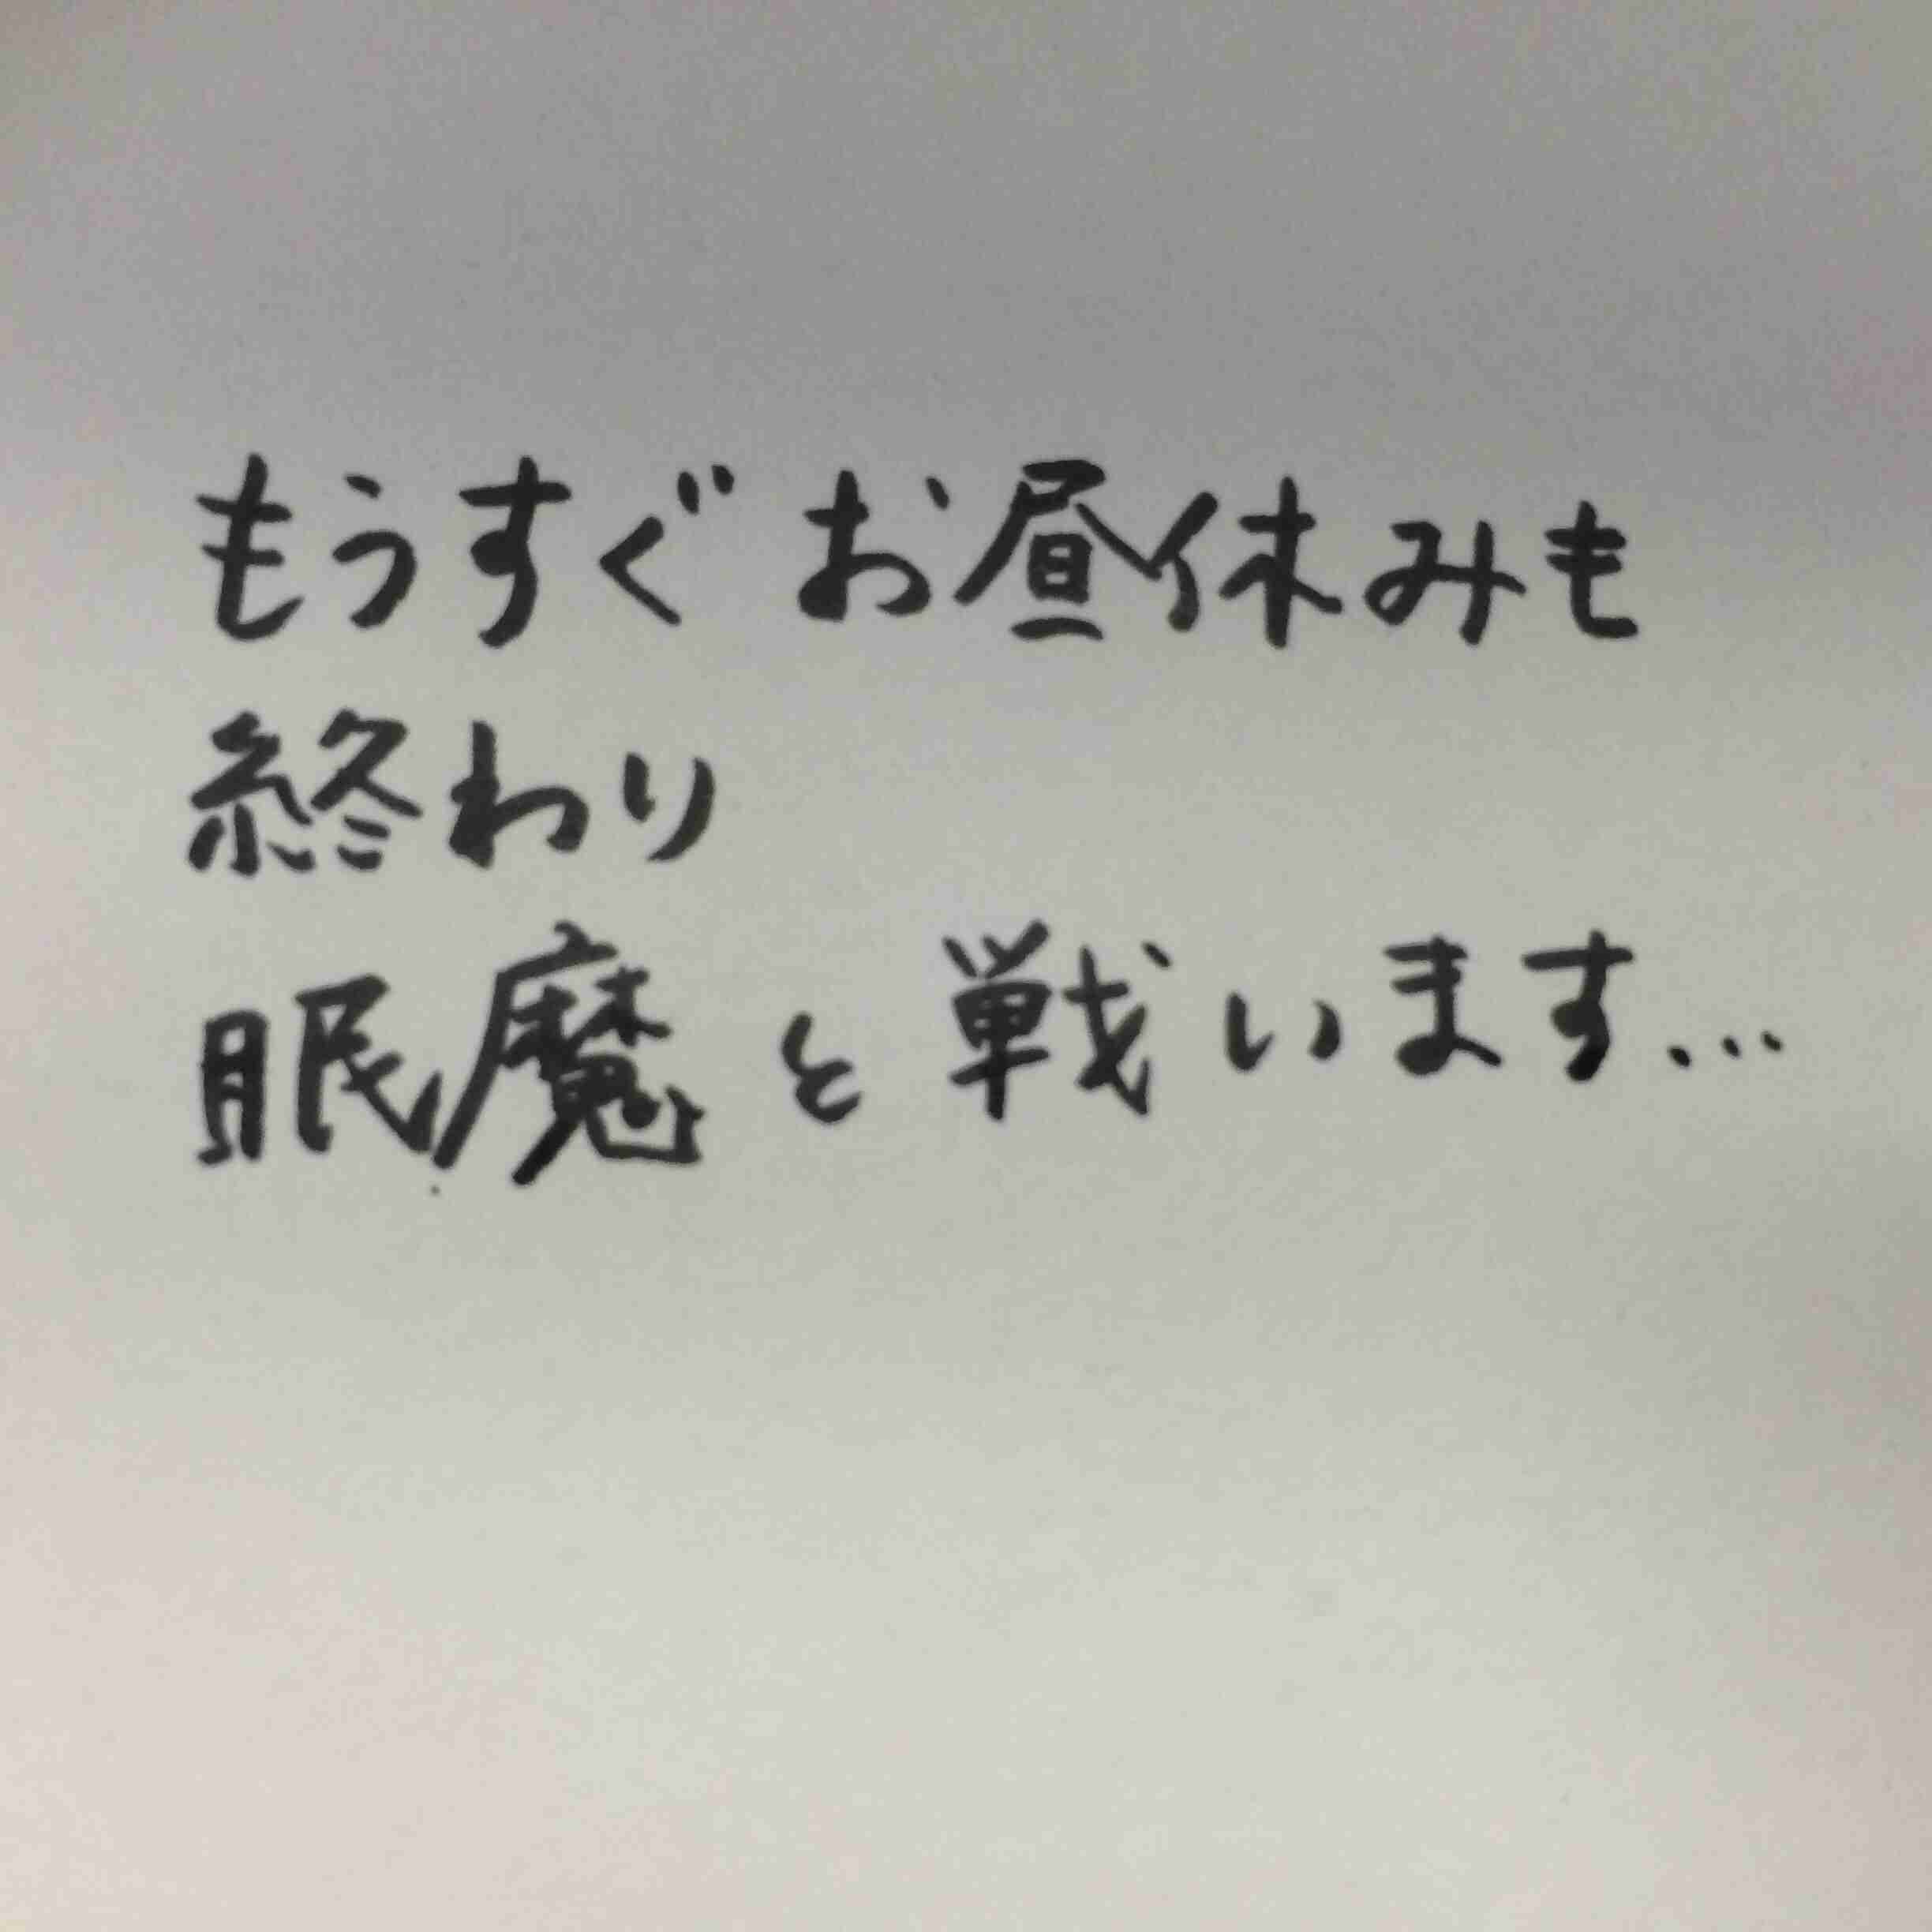 もうすぐお昼休みも
終わり
眠魔と戦います...